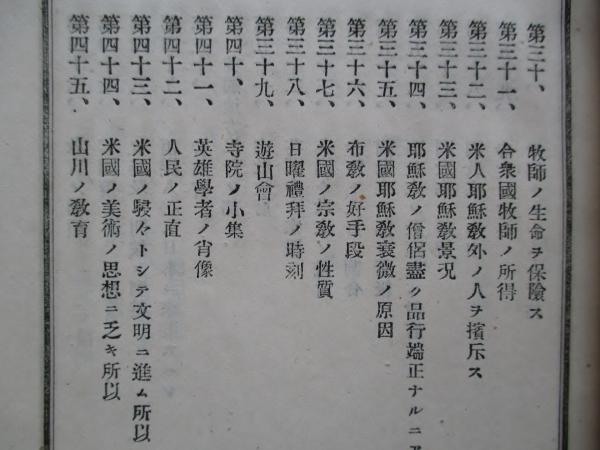 第三十、 牧師ノ生命ヲ保險ス
第三十一、 合衆國牧師ノ所得
第三十二、 米人耶穌敎外ノ人ヲ擯斥ス
第三十三、 米國耶穌敎景况
第三十四、 耶穌敎ノ僧侶盡ク品行端正ナルニ
第三十五、 米國耶穌敎衰微ノ原因
第三十六、 布敎ノ好手段
第三十七、 米國ノ宗敎ノ性質
第三十八、 日曜禮拜ノ時刻
第三十九、 遊山會
第四十、 寺院ノ小集
第四十一、 英雄學者ノ肖像
第四十二、 人民ノ正直
第四十三、 米國ノ駸々トシテ文明ニ進ム所以
第四十四、 米國ノ美術ノ思想ニ乏キ所以
第四十五、 山川ノ敎育